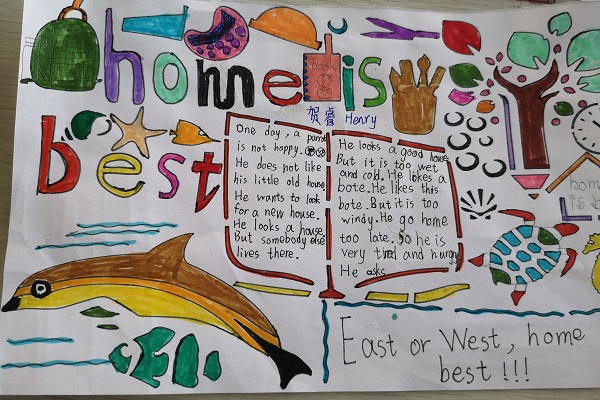 home is
best
book
贺睿 Henry
One day, a parrot
is not hoppy.
He does not like
his little old house
He wants to look
for a new house.
He looks a house.
But somebody else
lives there.
He looks a good house
But it is too wet
and cold. He lokes a
bote. He likes this
bote. But it is too
windy. He go home
too late. So he is
very tired and hungry
He asks
home
is b
East or West, home
best !!!